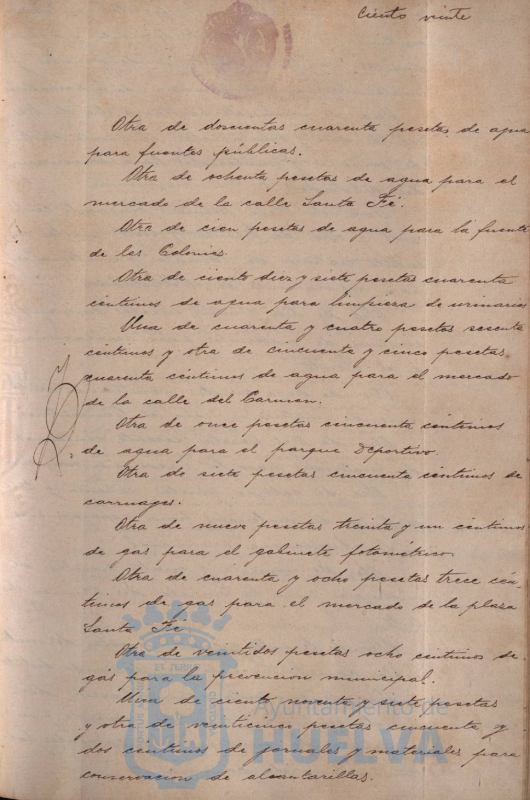 Ciento veinte
Otra de doscientas cuarenta pesetas de agua
para fuentes públicas.
Otra de ochenta pesetas de agua para el
mercado de la calle Santa Fé.
Otra de cien pesetas de agua para la fuente
de las Colonias.
Otra de ciento diez y siete pesetas cuarenta
centimos de agua para limpieza de urinarios
Una de cuarenta y cuatro pesetas sesenta
céntimos y otra de cincuenta y cinco pesetas
cuarenta céntimos de agua para el mercado
de la calle del Carmen.
Otra de once pesetas cincuenta céntimos
de agua para el parque deportivo.
Otra de siete pesetas cincuenta céntimos de
carruages.
Otra de nueve pesetas treinta y un céntimos
de gas para el gabinete fotométrico.
Otra de cuarenta y ocho pesetas trece cén-
timos de gas para el mercado de la plaza
Santa Fé
Otra de veintidos pesetas ocho centimos de
gas para la prevencion municipal.
Una de ciento noventa y siete pesetas
y otra de veinticinco pesetas cincuenta y
dos centimos de jornales y materiales para
conservacion de alcantarillas.
Ayuntamiento de
HUELVA